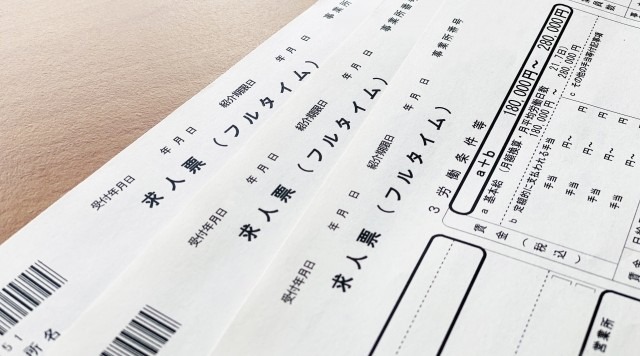 事業所番号
紹介期限日
受付年月日 年 月 日
求人票（フルタイム）
51
所名
事業所番号
紹介期限日 年 月 日
受付年月日 年 月 日
求人票（フルタイム）
事業所番号
紹介期限日 年 月 日
受付年月日 年 月 日
求人票（フルタイム）
3 労働条件等
a+b
180,000円～ 280,000円
a 基本給（月額換算・月平均労働日数 21.7日）
180,000円～ 280,000円
b 定額的に支払われる手当
手当 円～ 円
手当 円～ 円
手当 円～ 円
手当 円～ 円
c その他の手当等付記事項
賃金（税込）
営業所